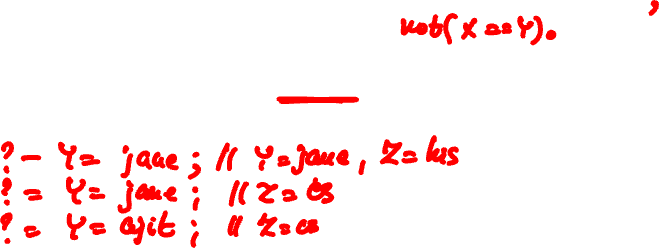 not(X==Y). ,
?- Y= jane; // Y=jane, Z= his
?= Y= jane; // Z= cs
?= Y= ajit; // Z=cs